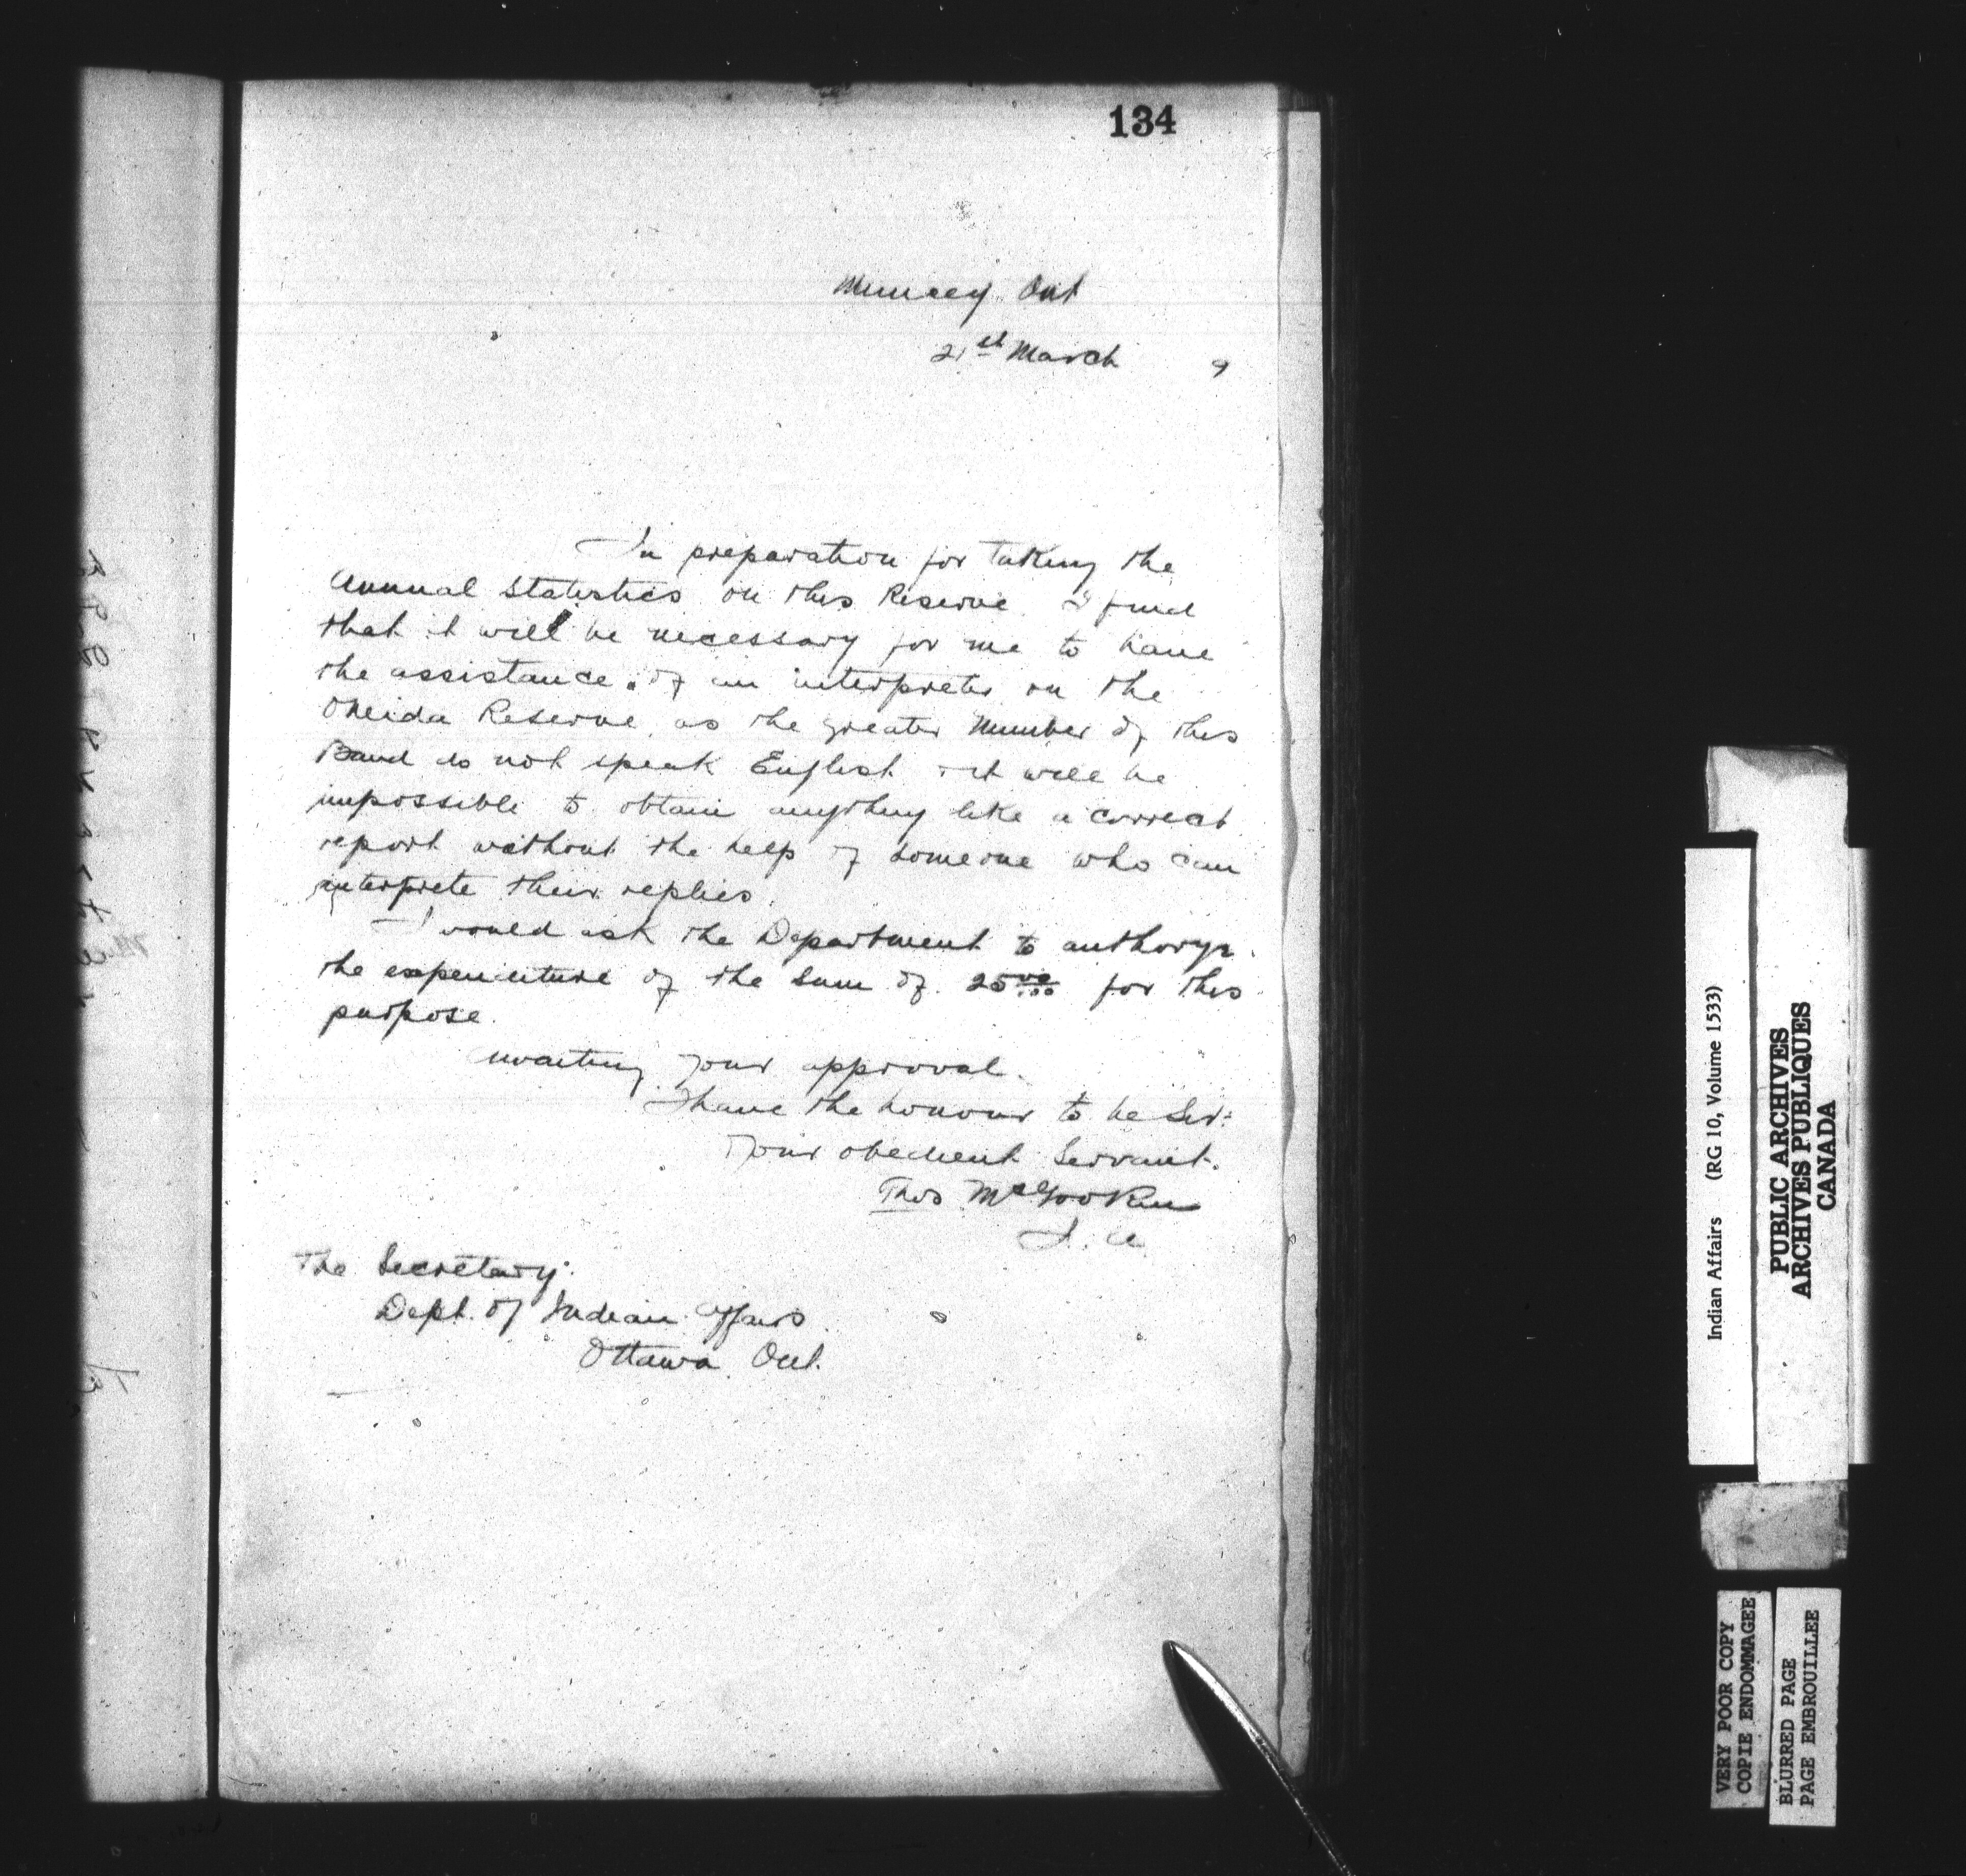 134
Muncey Ont
21st March 9
In preparation for taking the
Annual Statistics on this Reserve I find
that it will be necessary for me to have
the assistance of an interpreter on the
Oneida Reserve as the greater Number of this
Band do not speak English & it will be
impossible to obtain anything like a correct
report without the help of someone who can
interprete their replies.
I would ask the Department to authoryze
the expenditure of the sum of 25 00/100 for this
purpose.
Awaiting your approval.
I have the honour to be Sir:
Your obedient Servant.
Thos McGookin
I. A.
The Secretary.
Dept. of Indian Affairs
Ottawa Ont.
Indian Affairs (RG 10, Volume 1533)
PUBLIC ARCHIVES
ARCHIVES PUBLIQUES
CANADA
VERY POOR COPY
COPIE ENDOMMAGEE
BLURRED PAGE
PAGE EMBROUILLEE